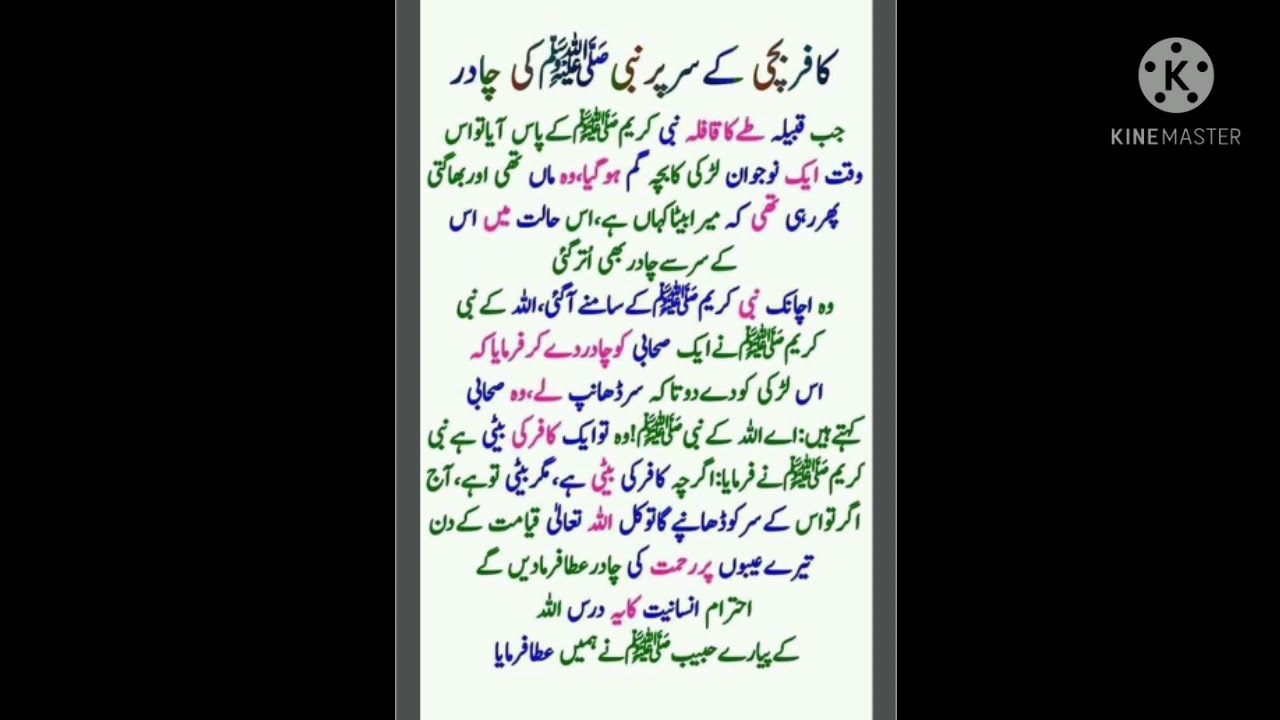 کافر بچی کے سر پر نبی ﷺ کی چادر
جب قبیلہ طے کا قافلہ نبی کریم ﷺ کے پاس آیا تو اس
وقت ایک نوجوان لڑکی کا بچہ گم ہو گیا، وہ ماں تھی اور بھاگتی
پھر رہی تھی کہ میرا بیٹا کہاں ہے، اس حالت میں اس
کے سر سے چادر بھی اُتر گئی
وہ اچانک نبی کریم ﷺ کے سامنے آ گئی، اللہ کے نبی
کریم ﷺ نے ایک صحابی کو چادر دے کر فرمایا کہ
اس لڑکی کو دے دو تاکہ سر ڈھانپ لے، وہ صحابی
کہتے ہیں: اے اللہ کے نبی ﷺ! وہ تو ایک کافر کی بیٹی ہے نبی
کریم ﷺ نے فرمایا: اگرچہ کافر کی بیٹی ہے، مگر بیٹی تو ہے، آج
اگر تو اس کے سر کو ڈھانپے گا تو کل اللہ تعالیٰ قیامت کے دن
تیرے عیبوں پر رحمت کی چادر عطا فرما دیں گے
احترام انسانیت کا یہ درس اللہ
کے پیارے حبیب ﷺ نے ہمیں عطا فرمایا
K
KINEMASTER